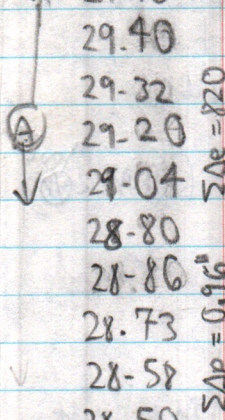 29.40
29-32
A
29-20
29-04
28-80
28-86
28.73
28-58
ΣΔe = 820
ΣΔp = 0.96"